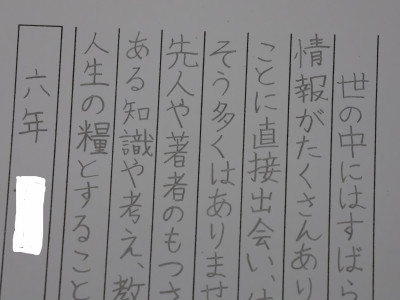 世の中にはすばら
情報がたくさんあり
ことに直接出会い、
そう多くはありませ
先人や著者のもつさ
ある知識や考え、教
人生の糧とすること
六年